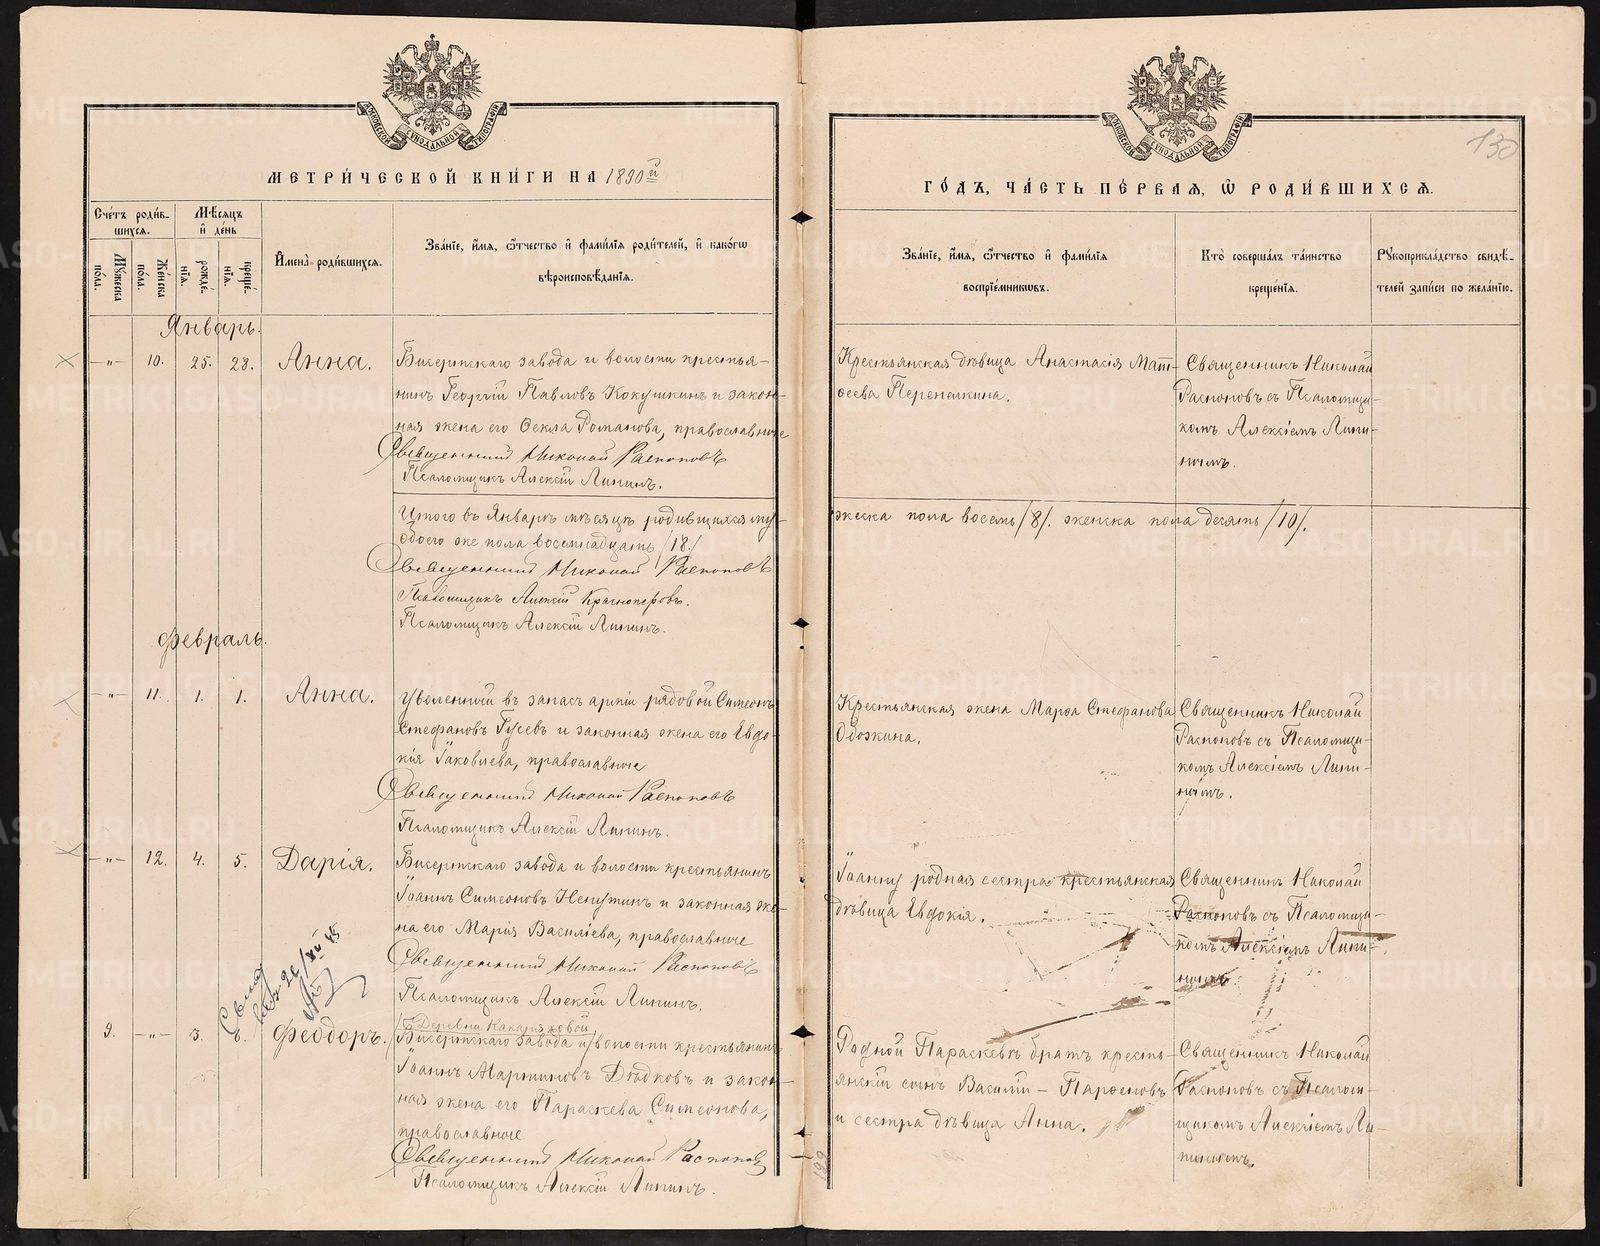 МЕТРИ́ЧЕСКОЙ КНИ́ГИ НА 1890й
Сче́тъ роди́в-
шихсѧ.
Мѣ́сѧцъ
и҆ де́нь
И҆мена̀ роди́вшихсѧ.
Зва́нїе, и҆́мѧ, ѻ҆́тчество и҆ фами́лїѧ роди́телей, и҆ како́гѡ
вѣроисповѣ́данїѧ.
Мꙋжеска
пола.
Женска
пола.
рожде́-
нїѧ.
креще́-
нїѧ.
Январь.
—"— 10. 25. 28. Анна.
Бисертскаго завода и волости крестья-
нинъ Георгій Павловъ Кокушкинъ и закон-
ная жена его Ѳекла Романова, православные
Священникъ Николай Распоповъ
Псаломщикъ Алексій Липинъ.
Итого въ Январѣ мѣсяцѣ родившихся му-
обоего же пола восемнадцать /18./
Священникъ Николай Распоповъ
Псаломщикъ Алексій Красноперовъ.
Псаломщикъ Алексій Липинъ.
Февраль.
—"— 11. 1. 1. Анна.
Уволенный въ запасъ арміи рядовой Симеонъ
Стефановъ Гусевъ и законная жена его Евдо-
кія Іаковлева, православные
Священникъ Николай Распоповъ
Псаломщикъ Алексій Липинъ.
—"— 12. 4. 5. Дарія.
Бисертскаго завода и волости крестьянинъ
Іоаннъ Симеоновъ Непутинъ и законная же-
на его Марія Василіева, православные
Священникъ Николай Распоповъ
Псаломщикъ Алексій Липинъ.
9. —"— 3. 6. Феодоръ.
Деревни Накаряковой
Бисертскаго завода и волости крестьянинъ
Іоаннъ Мартиновъ Дѣдковъ и закон-
ная жена его Параскева Симеонова,
православные
Священникъ Николай Распоповъ
Псаломщикъ Алексій Липинъ.
130
ГО́ДЪ, ЧА́СТЬ ПЕ́РВАѦ, Ѡ҆ РОДИ́ВШИХСѦ.
Зва́нїе, и҆́мѧ, ѻ҆́тчество и҆ фами́лїѧ
воспрїе́мниковъ.
Кто̀ соверша́лъ та́инство
креще́нїѧ.
Рꙋкоприкла́дство свидѣ́-
телей за́писи по жела́нїю.
Крестьянская дѣвица Анастасія Мат-
ѳеева Перепелкина.
Священникъ Николай
Распоповъ съ Псаломщи-
комъ Алексіемъ Липи-
нымъ.
жеска пола восемь /8/. женска пола десять /10/.
Крестьянская жена Марѳа Стефанова
Обожина.
Священникъ Николай
Распоповъ съ Псаломщи-
комъ Алексіемъ Липи-
нымъ.
Іоанну родная сестра крестьянская
дѣвица Евдокія.
Священникъ Николай
Распоповъ съ Псаломщи-
комъ Алексіемъ Липи-
нымъ.
Родной Параскевѣ братъ кресть-
янскій сынъ Василій Парѳеновъ
и сестра дѣвица Анна.
Священникъ Николай
Распоповъ съ Псалом-
щикомъ Алексіемъ Ли-
пинымъ.
METRIKI.GASO-URAL.RU